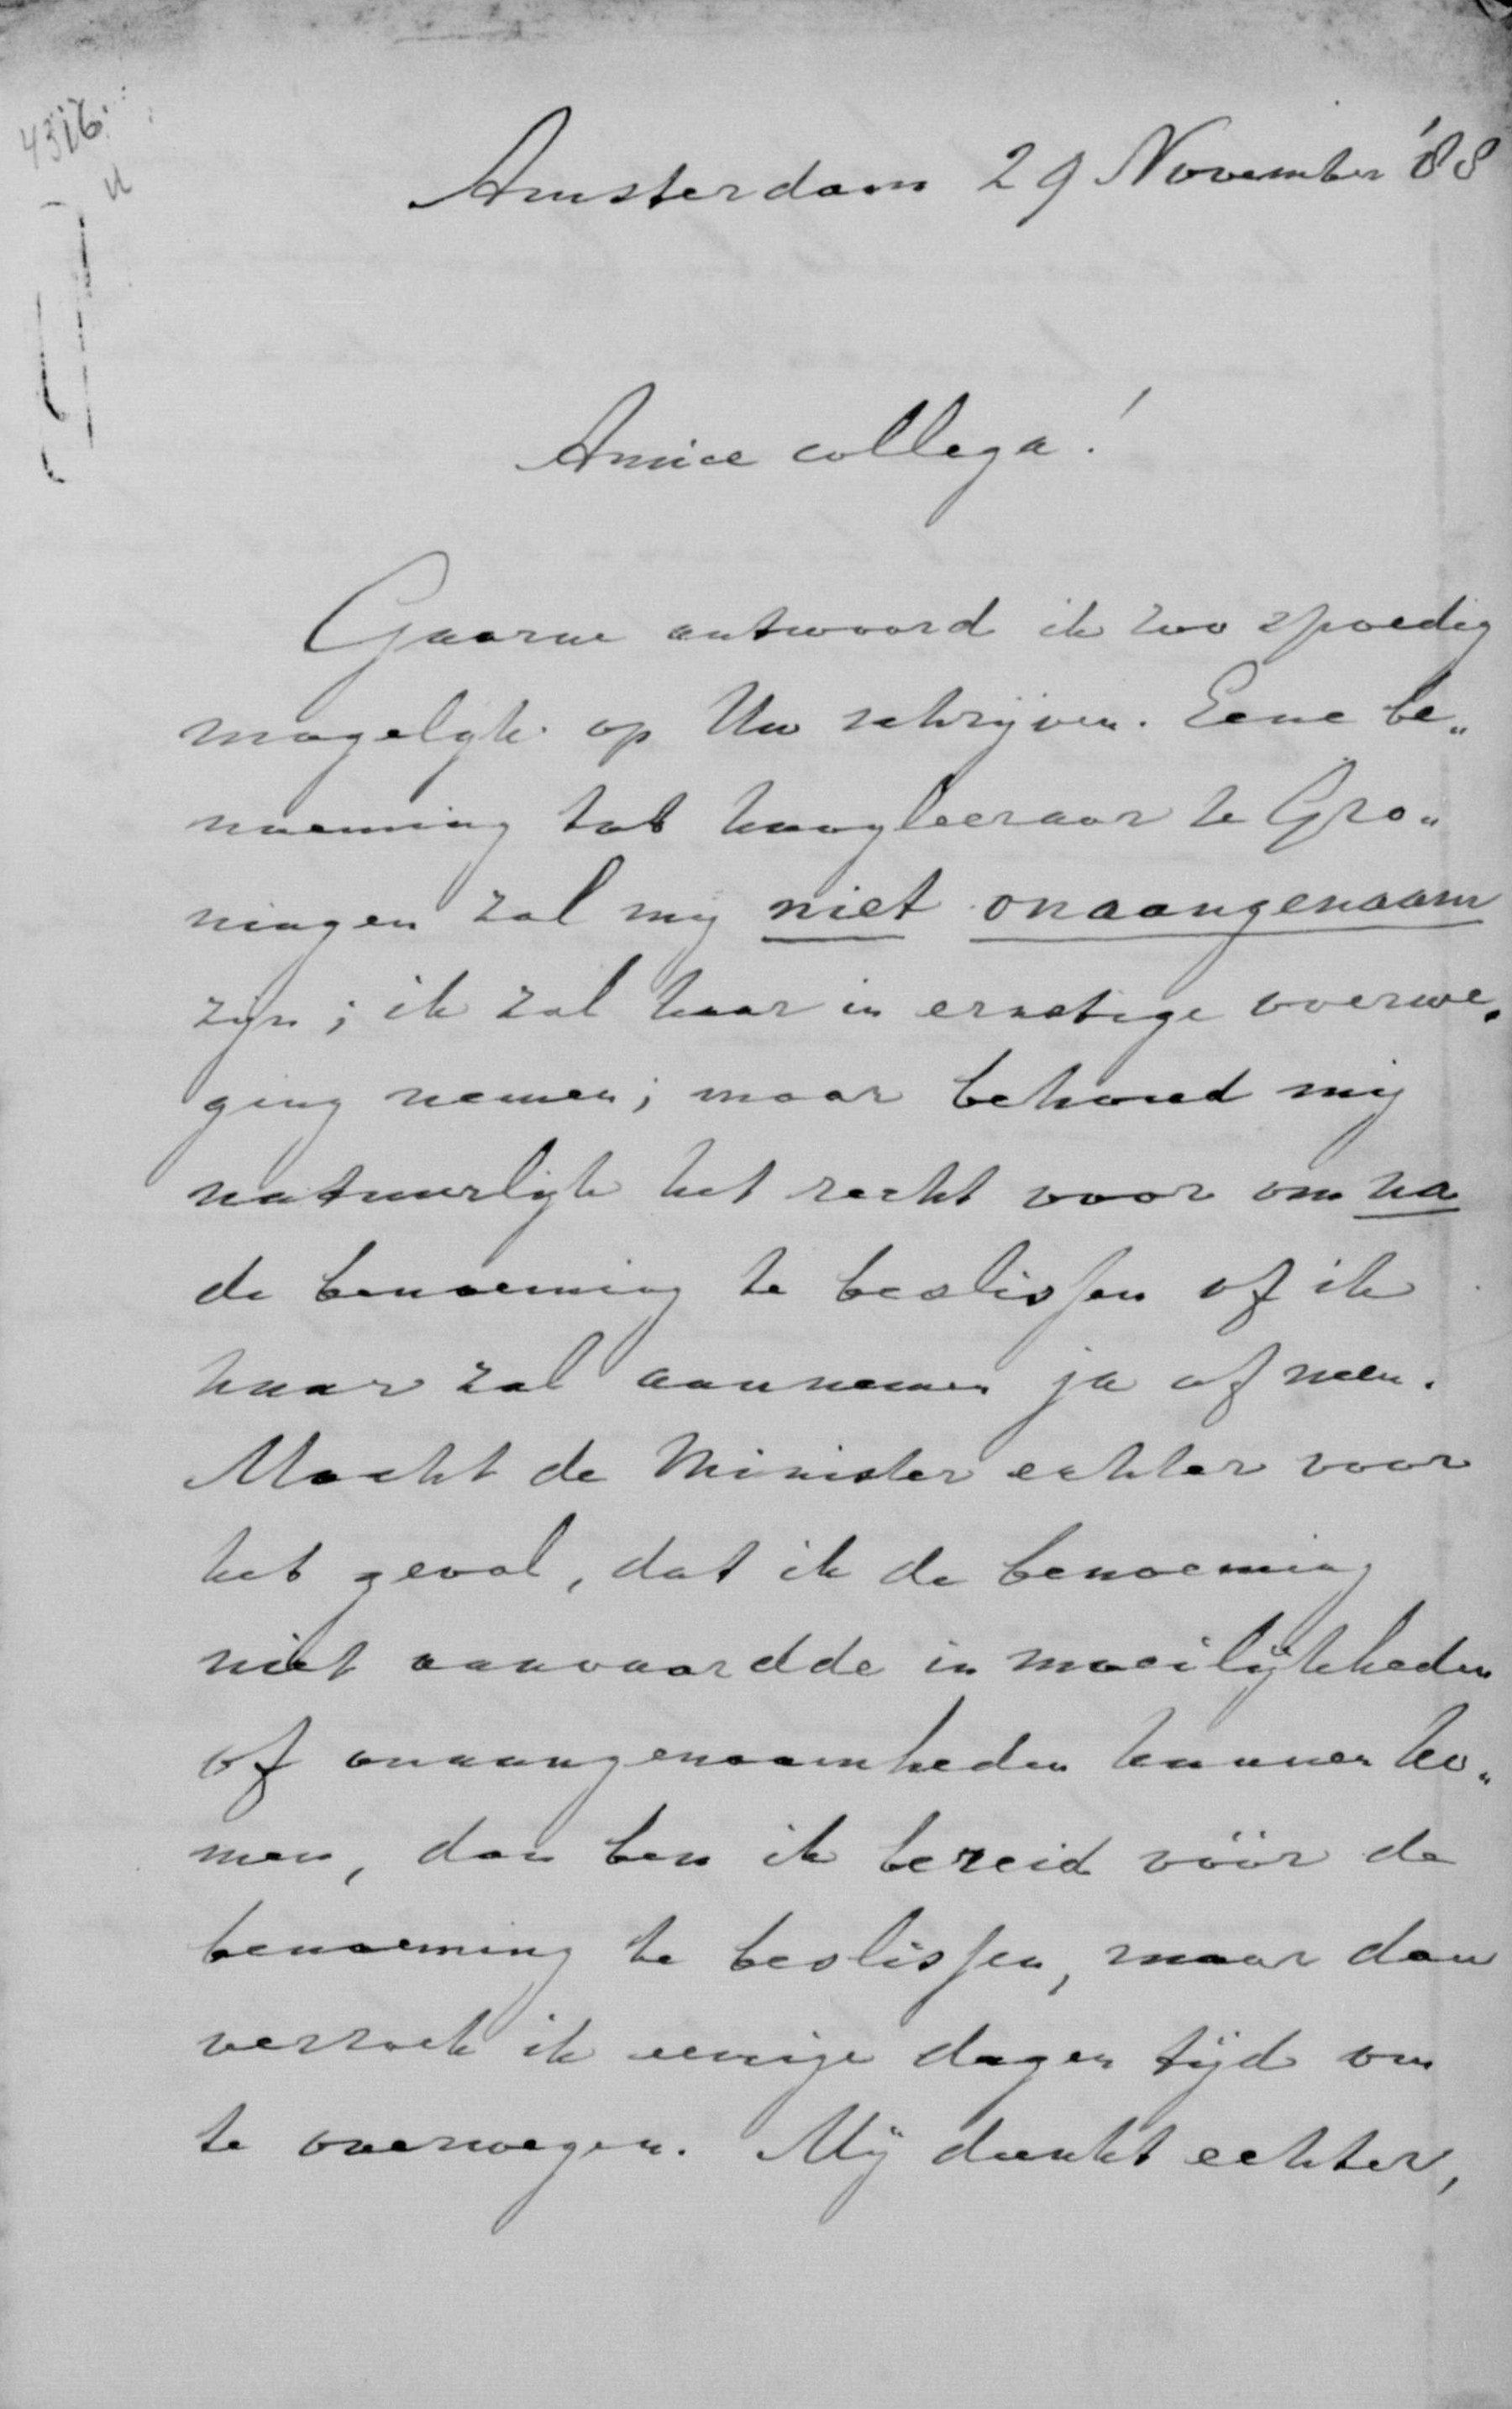 4316
Amsterdam 29 November '88
Amice collega!
Gaarne antwoord ik zoo spoedig
mogelijk op Uw schrijven. Eene be„
noeming tot hoogleeraar te Gro„
ningen zal mij niet onaangenaam
zijn; ik zal haar in ernstige overwe„
ging nemen; maar behoud mij
natuurlijk het recht voor om na
de benoeming te beslissen of ik
haar zal aannemen ja of neen.
Mocht de Minister echter voor
het geval, dat ik de benoeming
niet aanvaardde in moeilijkheden
of onaangenaamheden kunnen ko„
men, dan ben ik bereid vóór de
benoeming te beslissen, maar dan
verzoek ik eenige dagen tijd om
te overwegen. Mij dunkt echter,